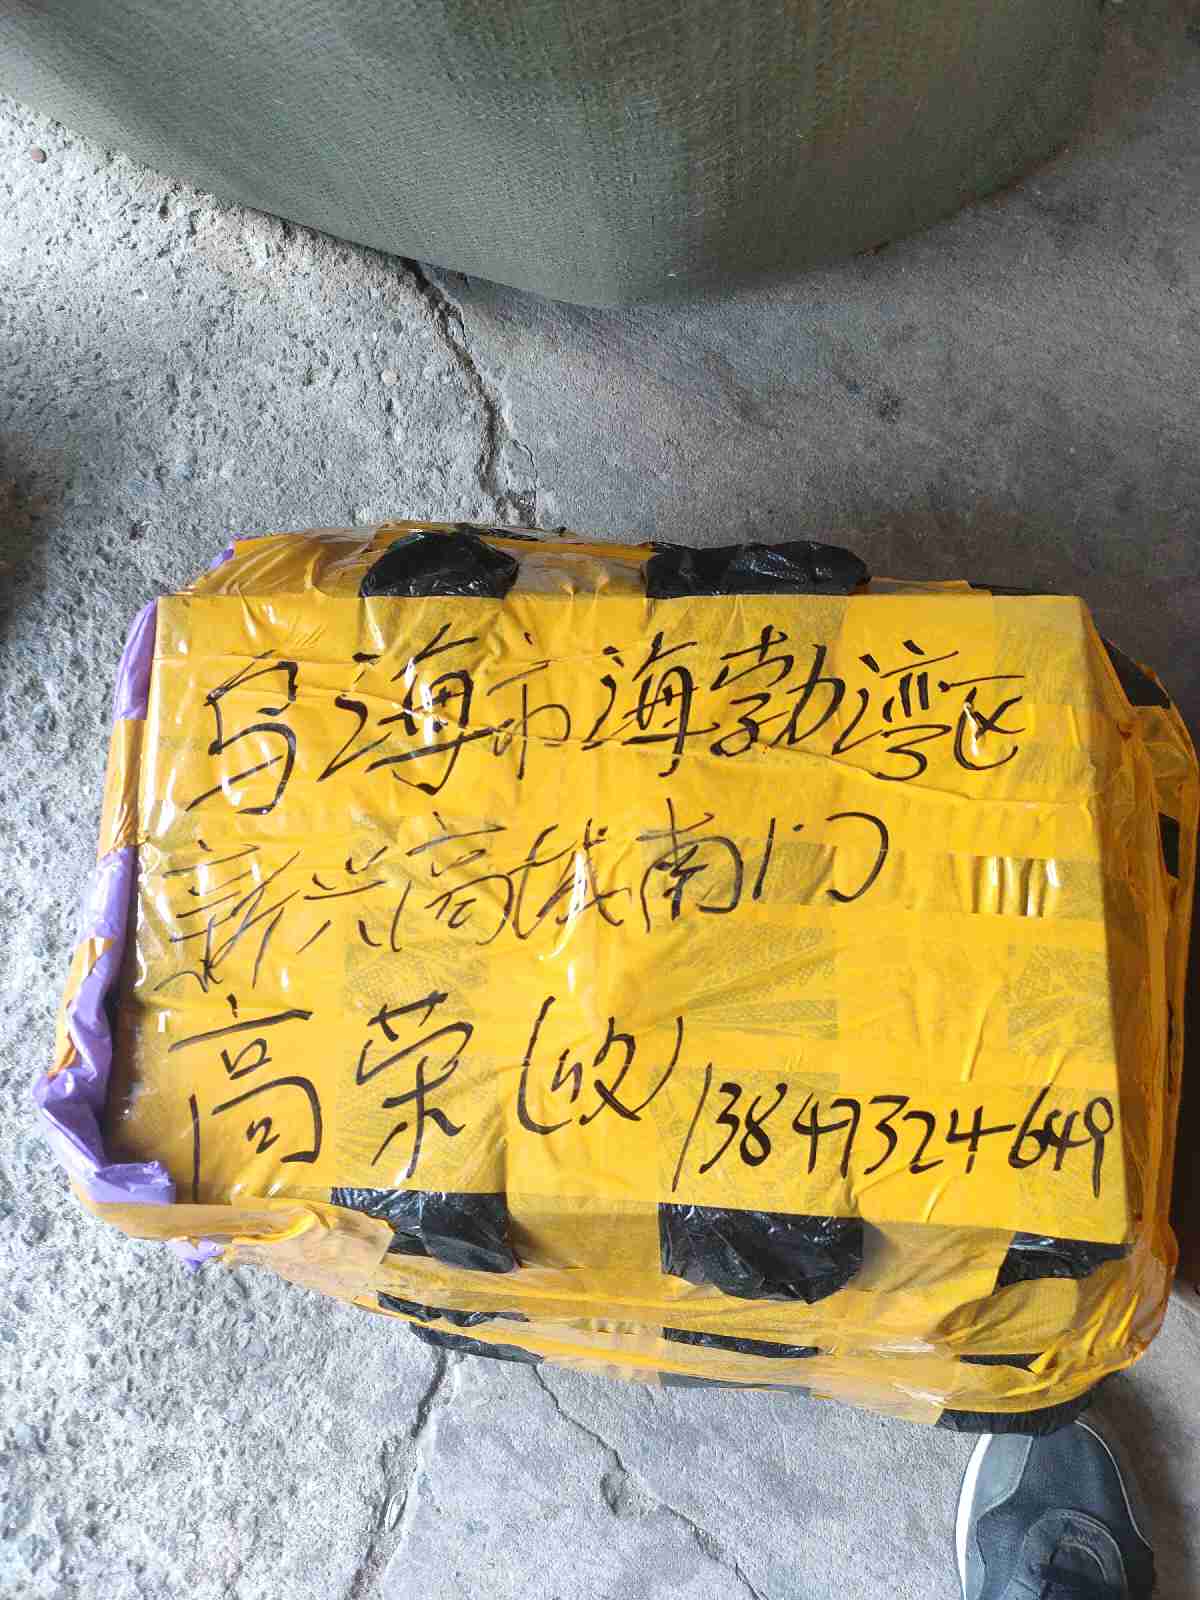 乌海市海勃湾区
新兴高城南门
高荣(收)13847324649